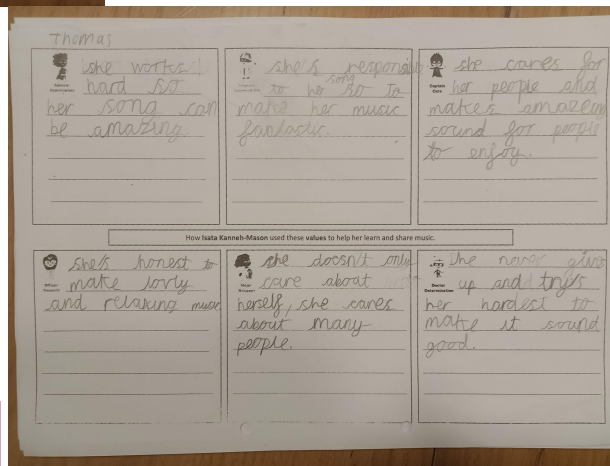 Thomas
she works
hard so
her song can
be amazing.
she's responsible
to her song so to
make her music
fantastic.
Captain
Care
she cares for
her people and
makes amazeing
sound for people
to enjoy.
How Isata Kanneh-Mason used these values to help her learn and share music.
she's honest to
make lovly
and relaxing music
she doesn't only
care about
herself, she cares
about many
people.
Doctor
Determination
She never give
up and try's
her hardest to
make it sound
good.